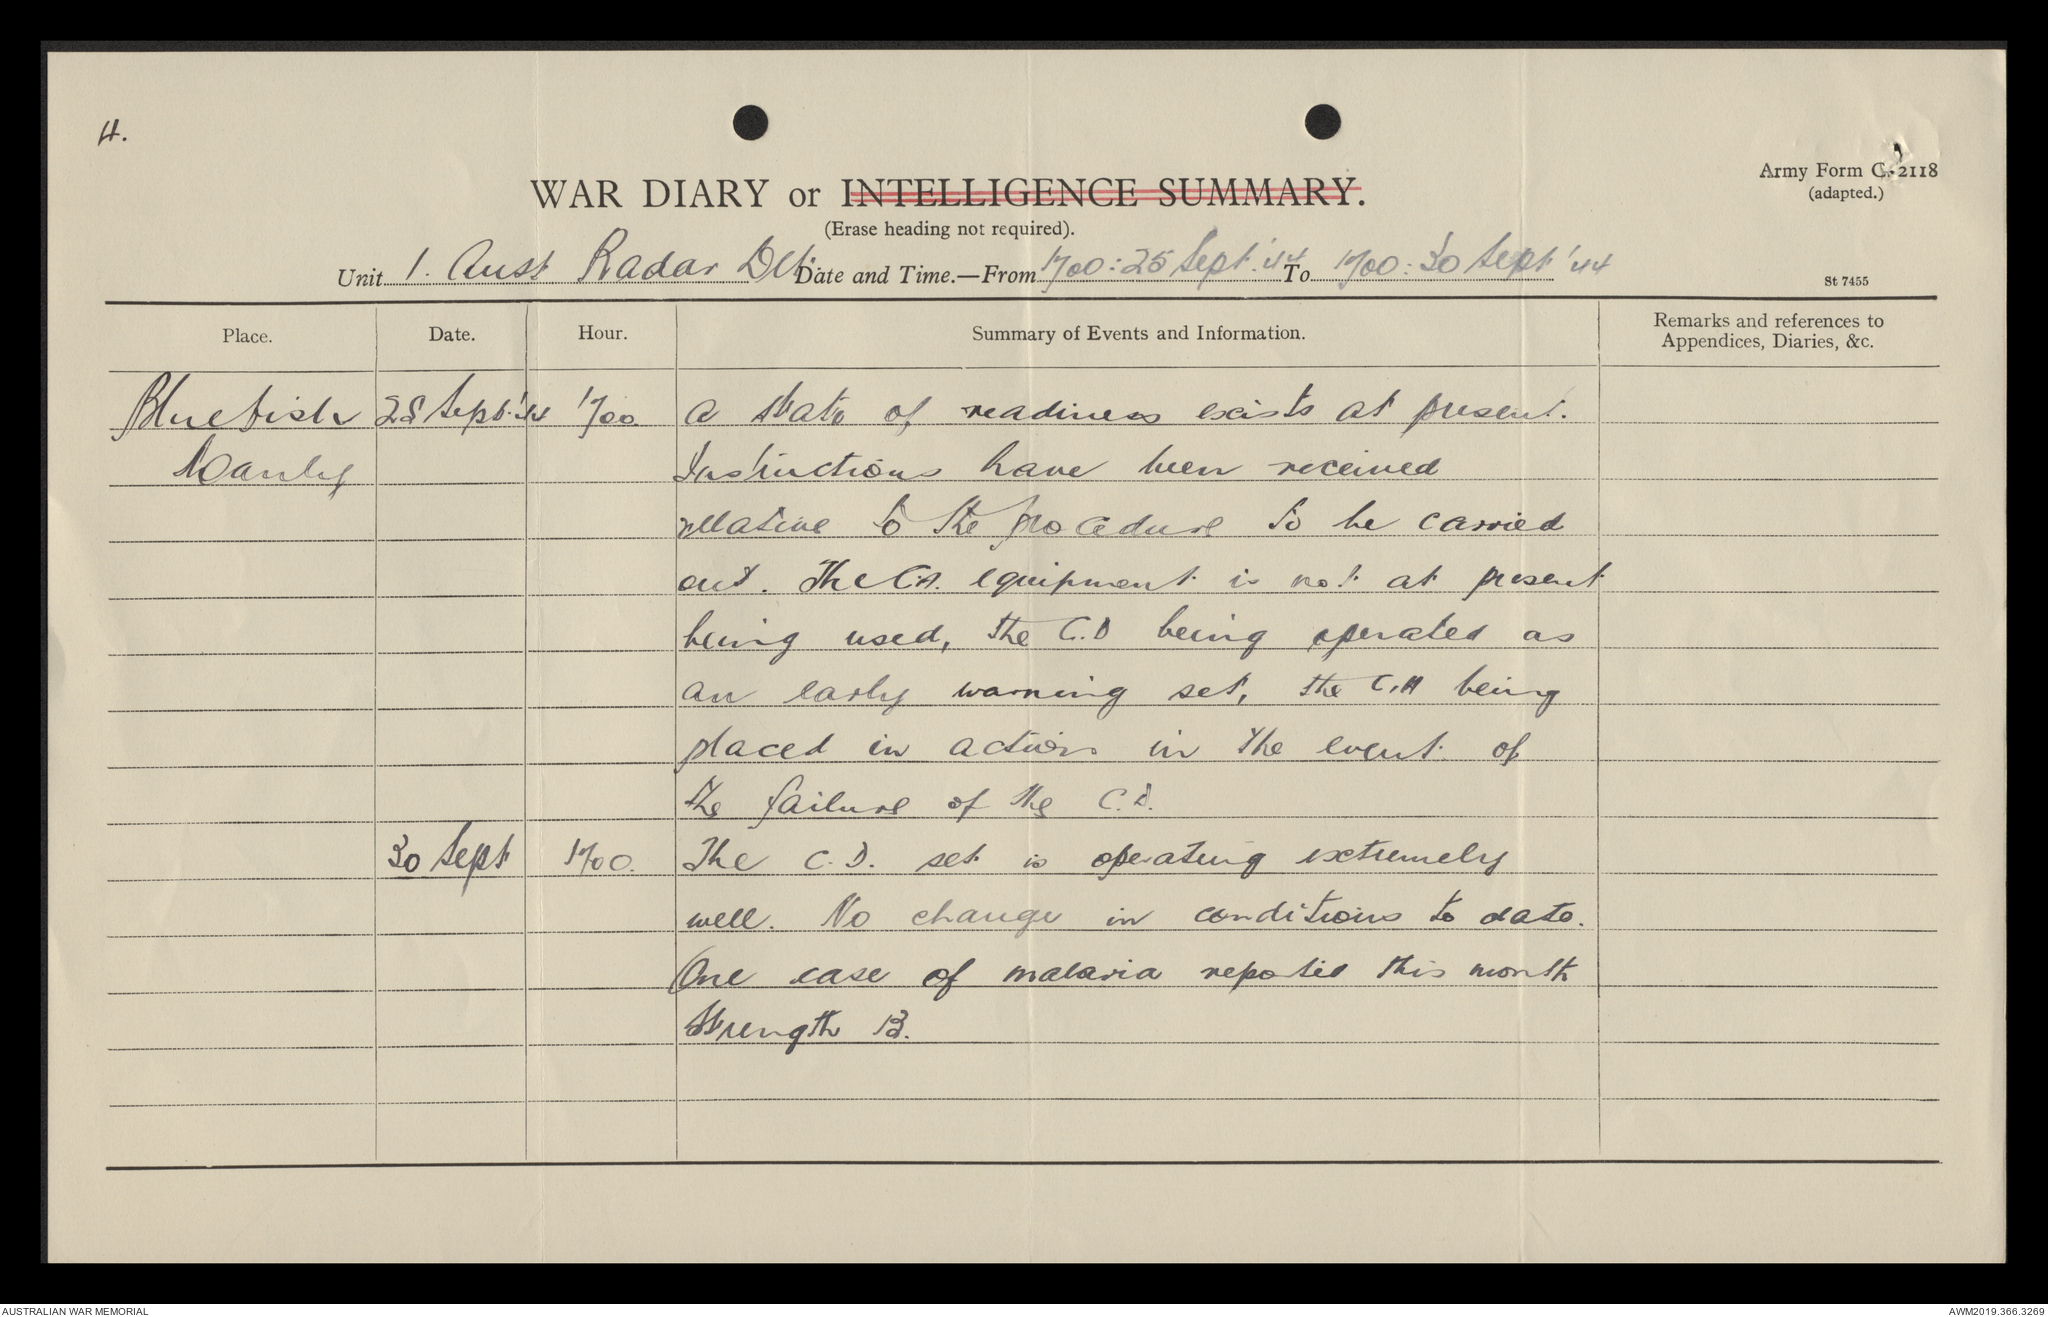 4.
Army Form C. 2118
(adapted.)
WAR DIARY or INTELLIGENCE SUMMARY.
(Erase heading not required).
Unit 1. Aust Radar Det. Date and Time.—From 1700: 25 Sept. '44 To 1700: 30 Sept '44
St 7455
Place. Date. Hour. Summary of Events and Information. Remarks and references to
Appendices, Diaries, &c.
Bluefish 25 Sept. '44 1700 A state of readiness exists at present.
Manly Instructions have been received
relative to the procedure to be carried
out. The C.A. equipment is not at present
being used, the C.D being operated as
an early warning set, the C.A being
placed in action in the event of
the failure of the C.D.
30 Sept 1700. The C.D. set is operating extremely
well. No change in conditions to date.
One case of malaria reported this month
Strength 13.
AUSTRALIAN WAR MEMORIAL
AWM2019.366.3269